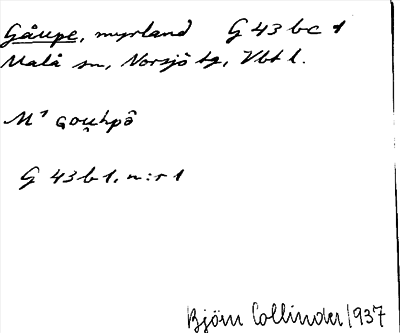 Gåupe, myrland G 43 bc 1
Malå sn, Norsjö tg, Vbt l.
M¹ Gou̯hpȯ̂
G 43 b 1, n:r 1
Björn Collinder 1937